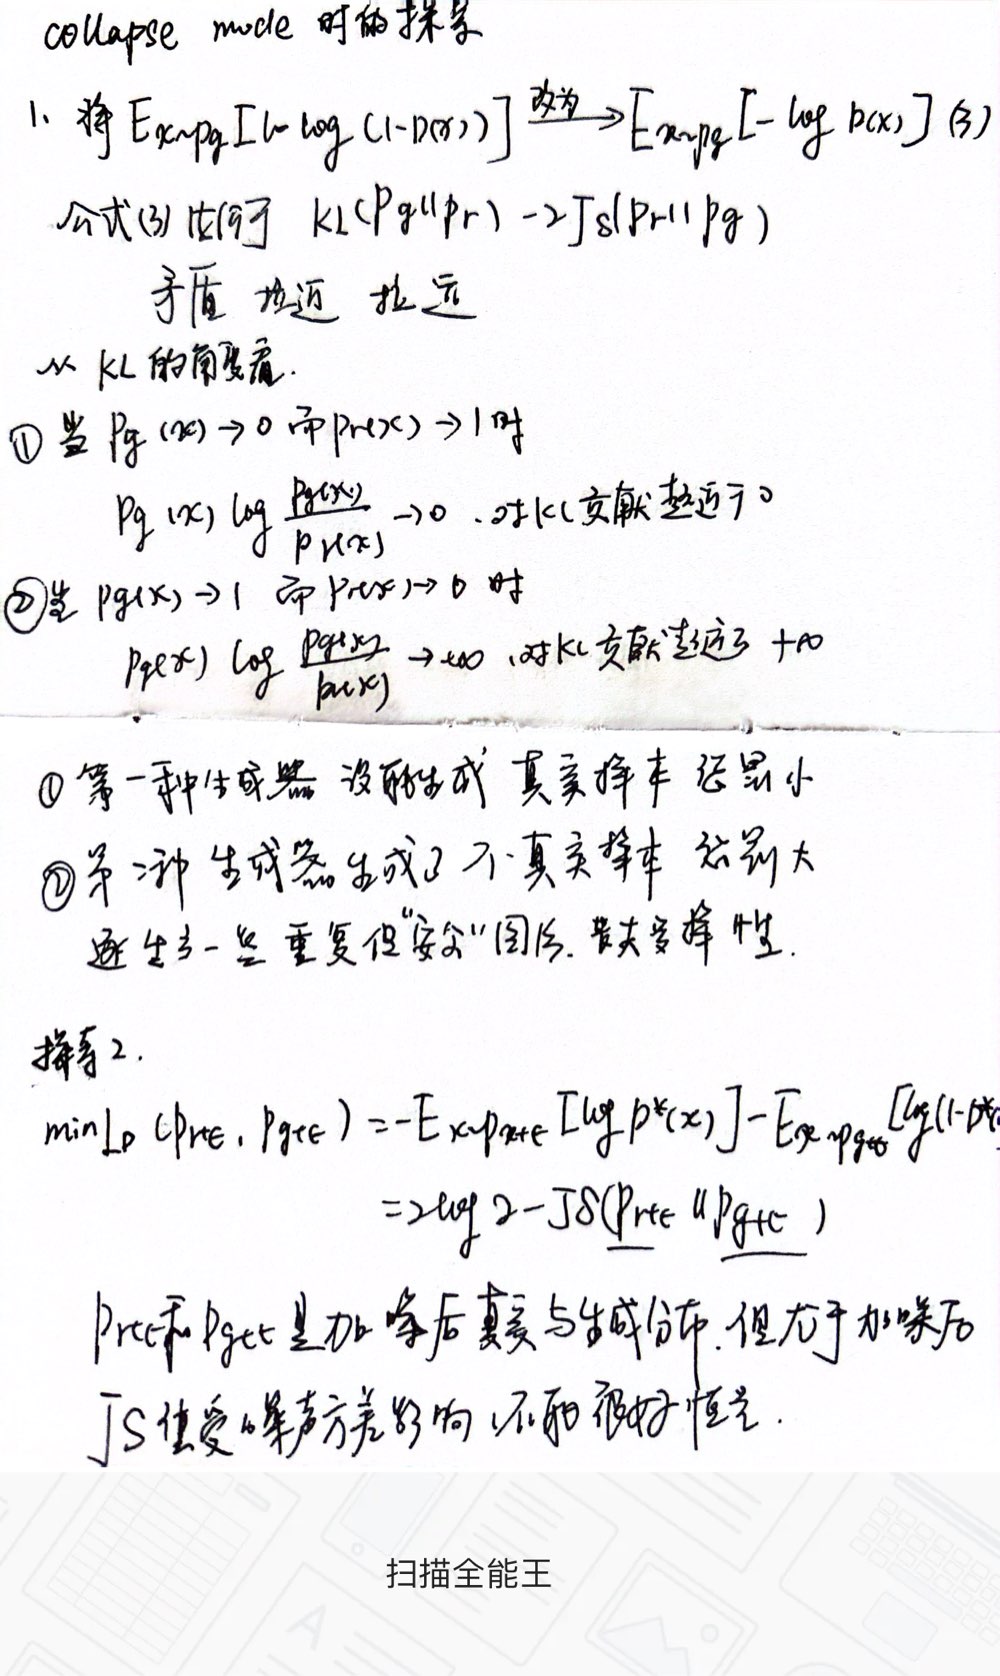 collapse mode 时的探索
1. 将 Ex~pg[log(1-D(x))] 改为→ Ex~pg[-log D(x)] (3)
公式(3)依何于 KL(Pg||Pr) -2JS(Pr||Pg)
矛盾 拉近 拉远
从 KL 的角度看.
① 当 Pg(x)→0 而Pr(x)→1时
Pg(x) log Pg(x)/Pr(x) →0 .对KL贡献趋近于0
②当 Pg(x)→1 而Pr(x)→0 时
Pg(x) log Pg(x)/Pr(x) →+∞ .对KL贡献趋近于 +∞
① 第一种生成器 没能生成 真实样本 惩罚小
② 第二种 生成器生成了不真实样本 惩罚大
逐生多一些 重复但"安全"图片. 丧失多样性.
2.
min LD (Pr+ε, Pg+ε) = -Ex~Pr+ε [log D*(x)] - Ex~Pg+ε [log(1-D*(x
= 2log2 - JS(Pr+ε || Pg+ε)
Pr+ε和Pg+ε是加噪后真实与生成分布.但 于加噪后
JS值受噪声方差影响,不能很好恒定.
扫描全能王